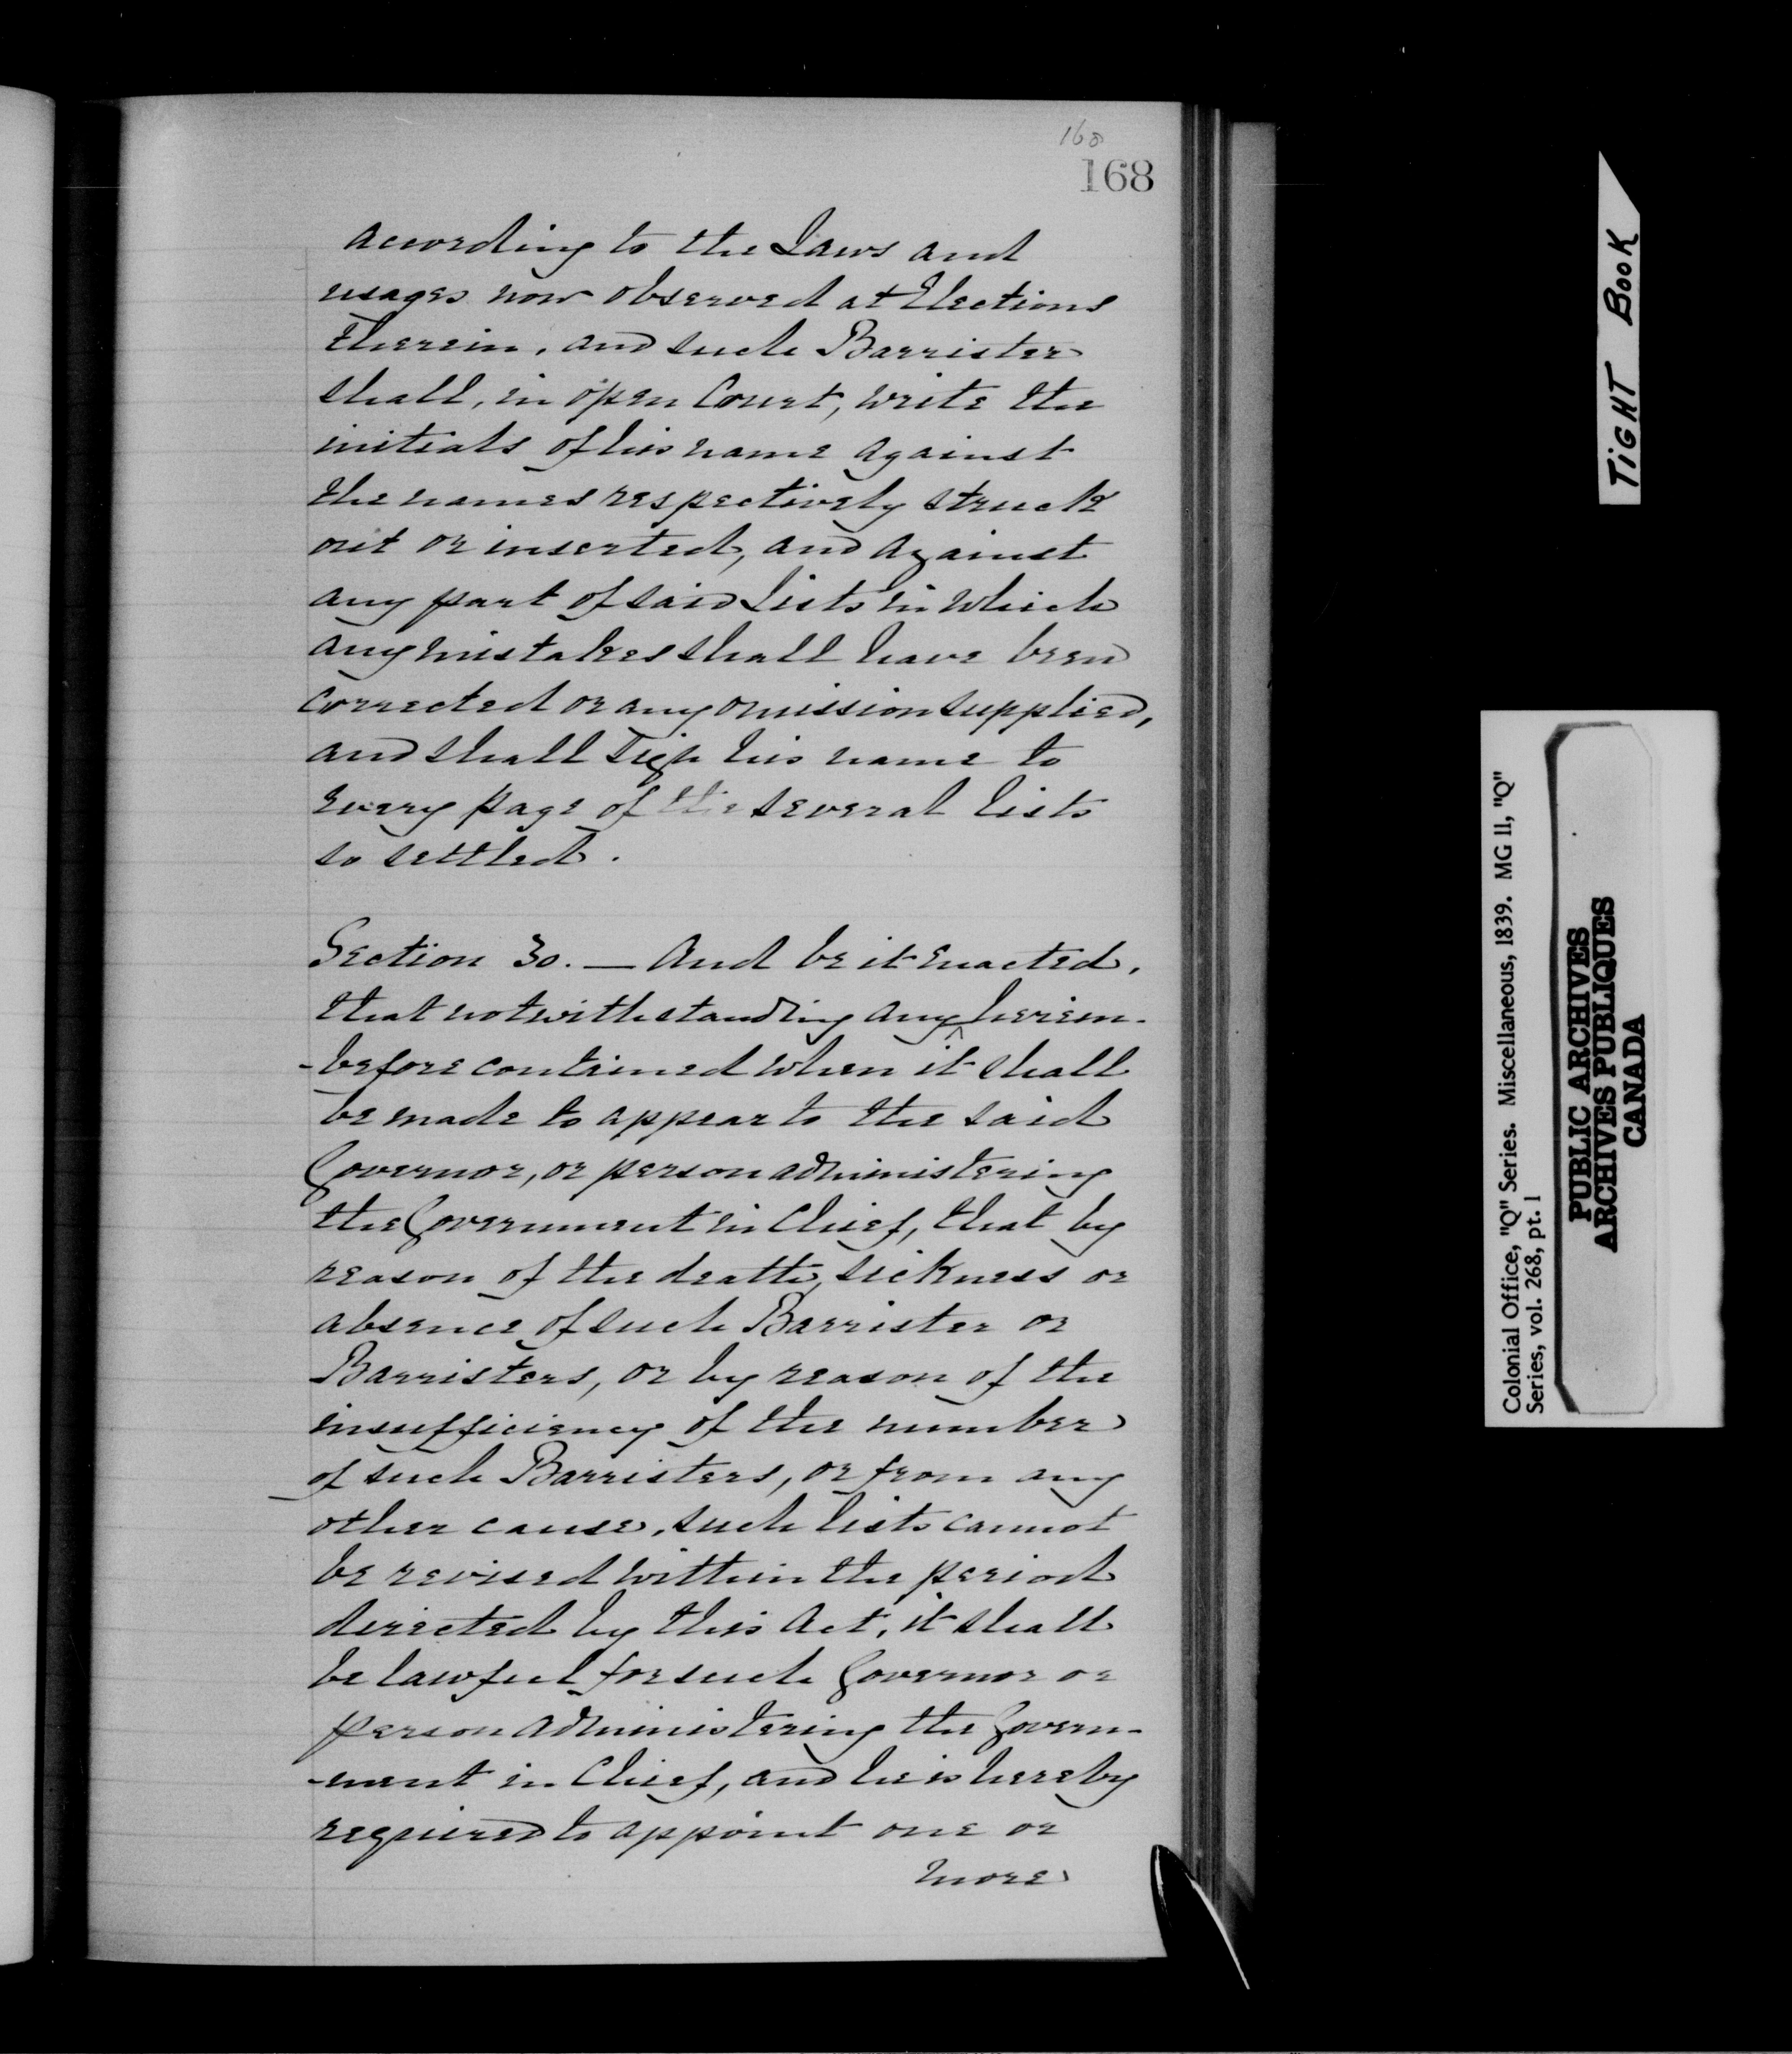 168
168
according to the Laws and
usages now observed at Elections
therein, and such Barrister
shall, in open Court, write the
initials of his name against
the names respectively struck
out or inserted, and against
any part of said Lists in which
any mistakes shall have been
corrected or any omission supplied,
and shall sign his name to
every page of the several lists
so settled.
Section 30. — And be it Enacted,
that notwithstanding any herein-
-before contained when it shall
be made to appear to the said
Governor, or person administering
the Government in Chief, that by
reason of the death, sickness or
absence of such Barrister or
Barristers, or by reason of the
insufficiency of the number
of such Barristers, or from any
other cause, such lists cannot
be revised within the period
directed by this Act, it shall
be lawful for such Governor or
person administering the Govern-
-ment in Chief, and he is hereby
required to appoint one or
more
TIGHT BOOK
Colonial Office, "Q" Series. Miscellaneous, 1839. MG 11, "Q"
Series, vol. 268, pt. 1
PUBLIC ARCHIVES
ARCHIVES PUBLIQUES
CANADA